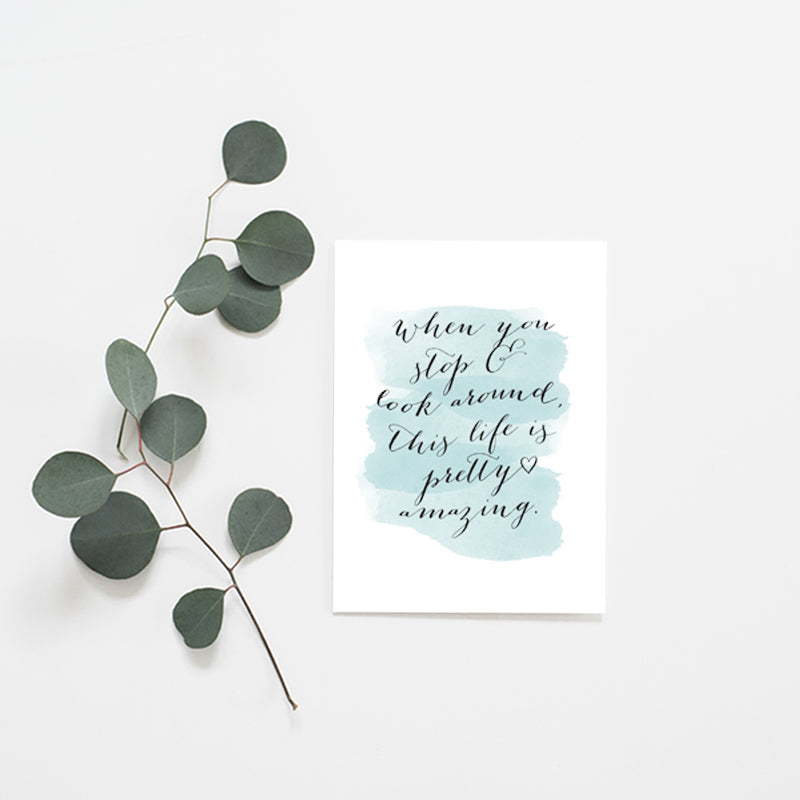 When you
stop &
look around,
this life is
pretty♡
amazing.